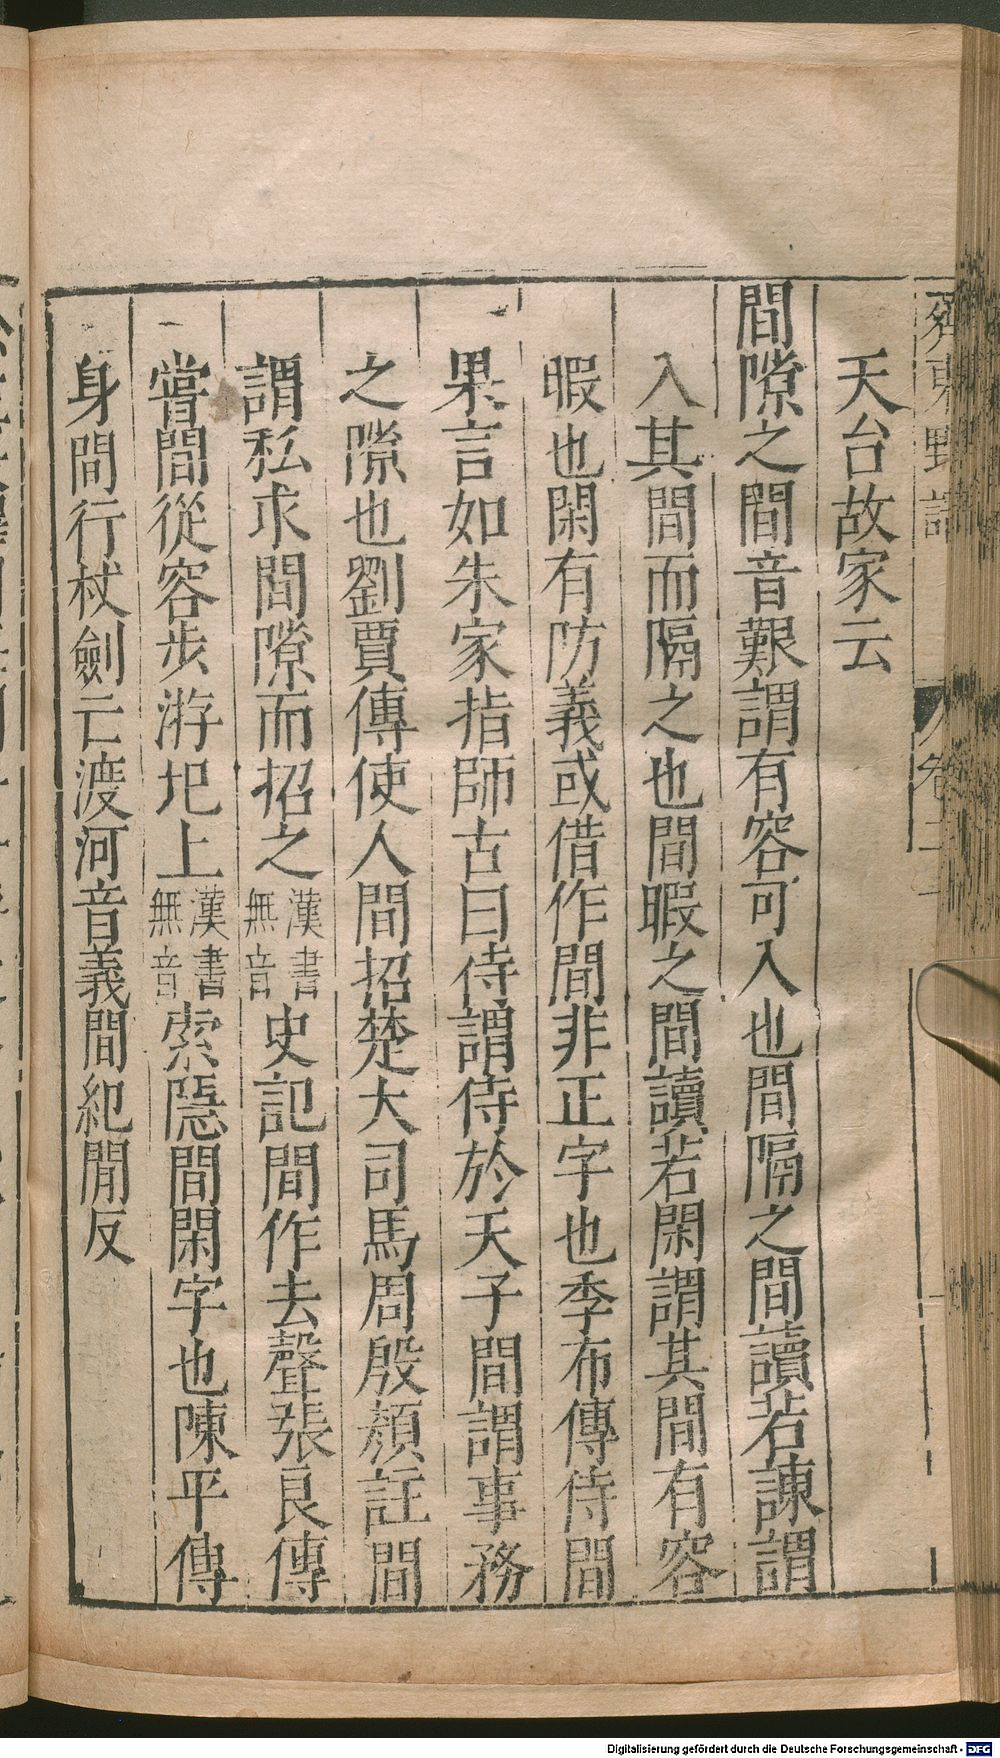 天台故家云
間隙之間音艱謂有容可入也間隔之間讀若諫謂
入其間而隔之也間暇之間讀若閑謂其間有容
暇也閑有防義或借作間非正字也季布傳侍間
果言如朱家指師古曰侍謂侍於天子間謂事務
之隙也劉賈傳使人間招楚大司馬周殷頳註間
謂私求間隙而招之漢書無音史記間作去聲張良傳
嘗間從容步游圯上漢書無音索隱間閑字也陳平傳
身間行杖劍亡渡河音義間紀閒反
Digitalisierung gefördert durch die Deutsche Forschungsgemeinschaft - DFG